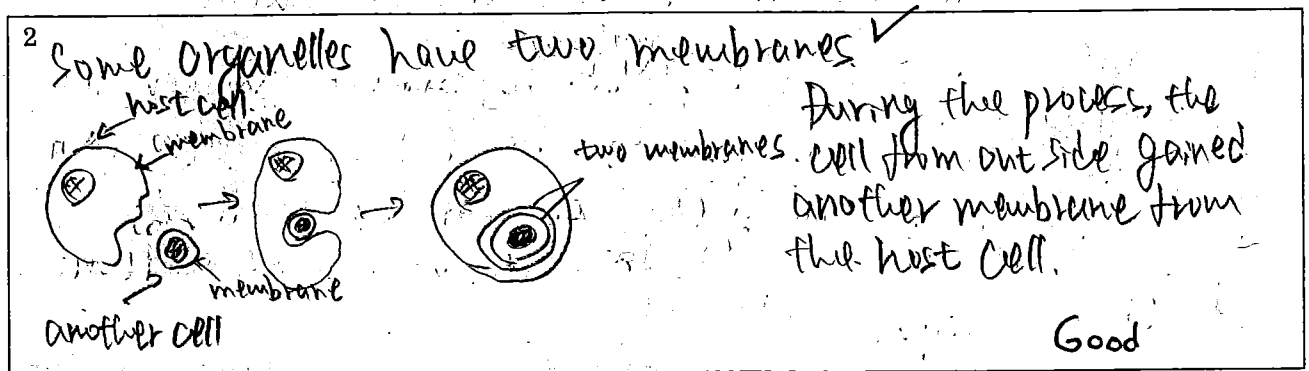 2
Some organelles have two membranes ✓
host cell
membrane
another cell
membrane
two membranes
During the process, the
cell from outside gained
another membrane from
the host cell.
Good